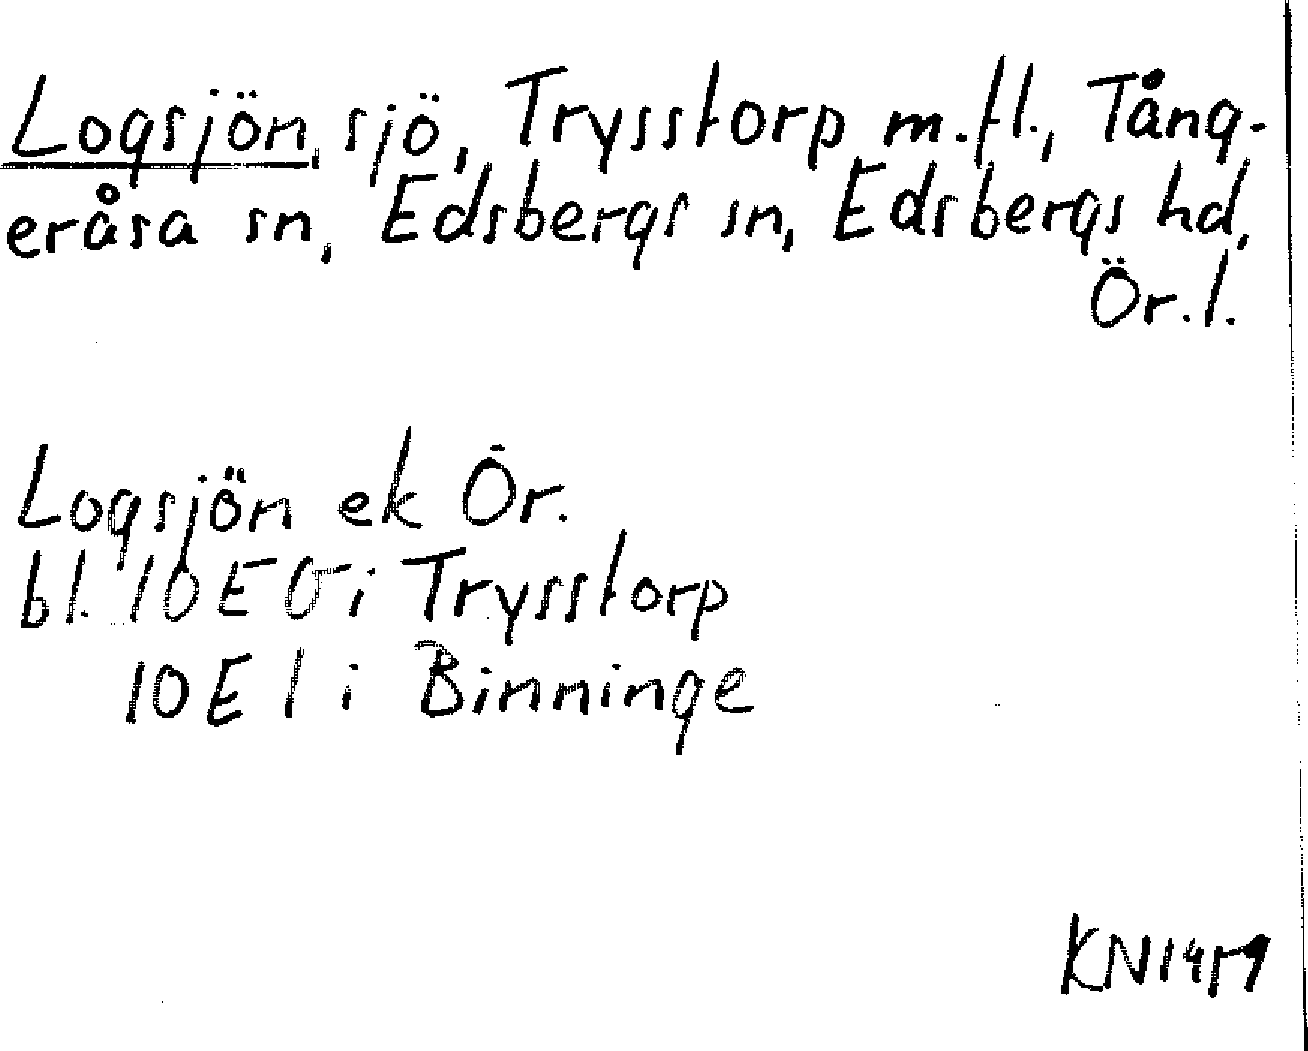 Logsjön, sjö, Trysstorp m.fl., Tång-
eråsa sn, Edsbergs sn, Edsbergs hd,
Ör.l.
Logsjön ek Ör.
bl. 10E 0 i Trysstorp
10E 1 i Binninge